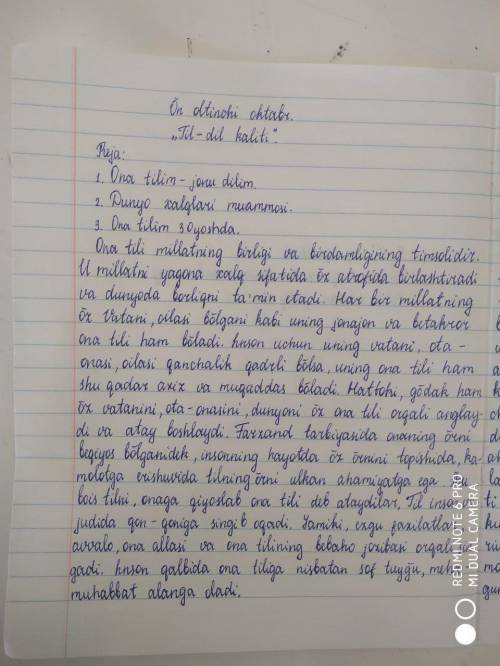 Õn oltinchi oktabr.
„Til-dil kaliti".
Reja:
1. Ona tilim - jonu dilim.
2. Dunyo xalqlari muammosi.
3. Ona tilim 30 yoshda.
Ona tili millatning birligi va birdamligining timsolidir.
U millatni yagona xalq sifatida õz atrofida birlashtiradi
va dunyoda borligni ta'min etadi. Har bir millatning
õz Vatani, oilasi bõlgani kabi uning jonajon va betakror
ona tili ham bõladi. Inson uchun uning vatani, ota-
onasi, oilasi qanchalik qadrli bõlsa, uning ona tili ham
shu qadar aziz va muqaddas bõladi. Hattohi, gõdak ham
õz vatanini, ota-onasini, dunyoni õz ona tili orqali anglay-
di va atay boshlaydi. Farzand tarbiyasida onaning õrni
beqiyos bõlganidek, insonning hayotda õz õrnini topishida, ka-
molotga erishuvida tilning õrni ulkan ahamiyatga ega.
bois tilni, onaga qiyoslab ona tili deb ataydilar. Til inson
judida qon-qoniga singib oqadi. Jamiki, ezgu fazilatlar
avvalo, ona allasi va ona tilining bebaho jozibasi orqali
gadi. Inson qalbida ona tiliga nisbatan sof tuyğu, meh
muhabbat alanga oladi.
REDMI NOTE 6 PRO
MI DUAL CAMERA